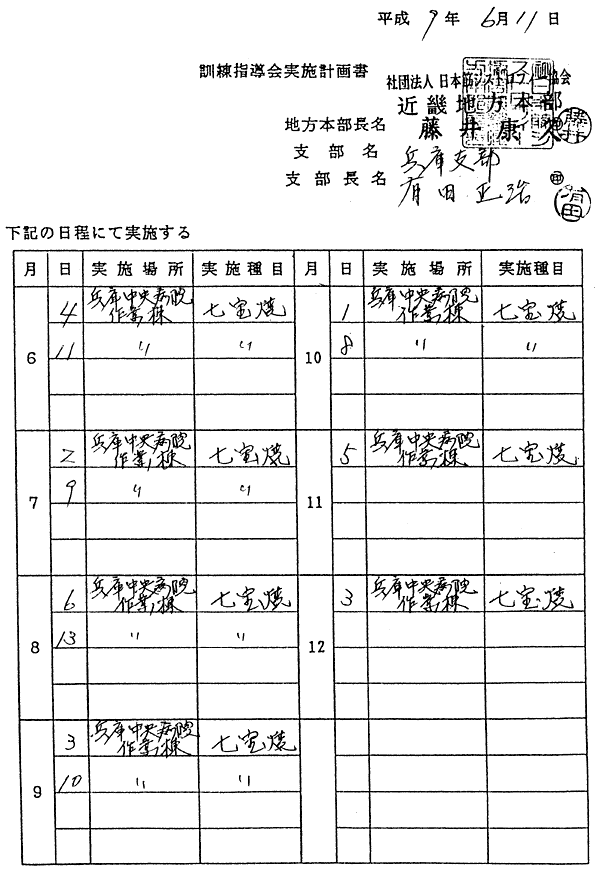 平成 9 年 6月11日
訓練指導会実施計画書
社団法人 日本筋ジストロフィー協会
近畿地方本部
地方本部長名 藤井康久
支部名 兵庫支部
支部長名 有田正浩
下記の日程にて実施する
月 日 実施場所 実施種目 月 日 実施場所 実施種目
6 4 兵庫中央病院作業棟 七宝焼 10 1 兵庫中央病院作業棟 七宝焼
11 〃 〃 8 〃 〃
7 2 兵庫中央病院作業棟 七宝焼 11 5 兵庫中央病院作業棟 七宝焼
9 〃 〃
8 6 兵庫中央病院作業棟 七宝焼 12 3 兵庫中央病院作業棟 七宝焼
13 〃 〃
9 3 兵庫中央病院作業棟 七宝焼
10 〃 〃